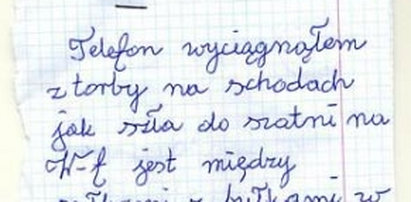 Telefon wyciągnąłem
z torby na schodach
jak szła do szatni na
W-f jest między
z bułkami w